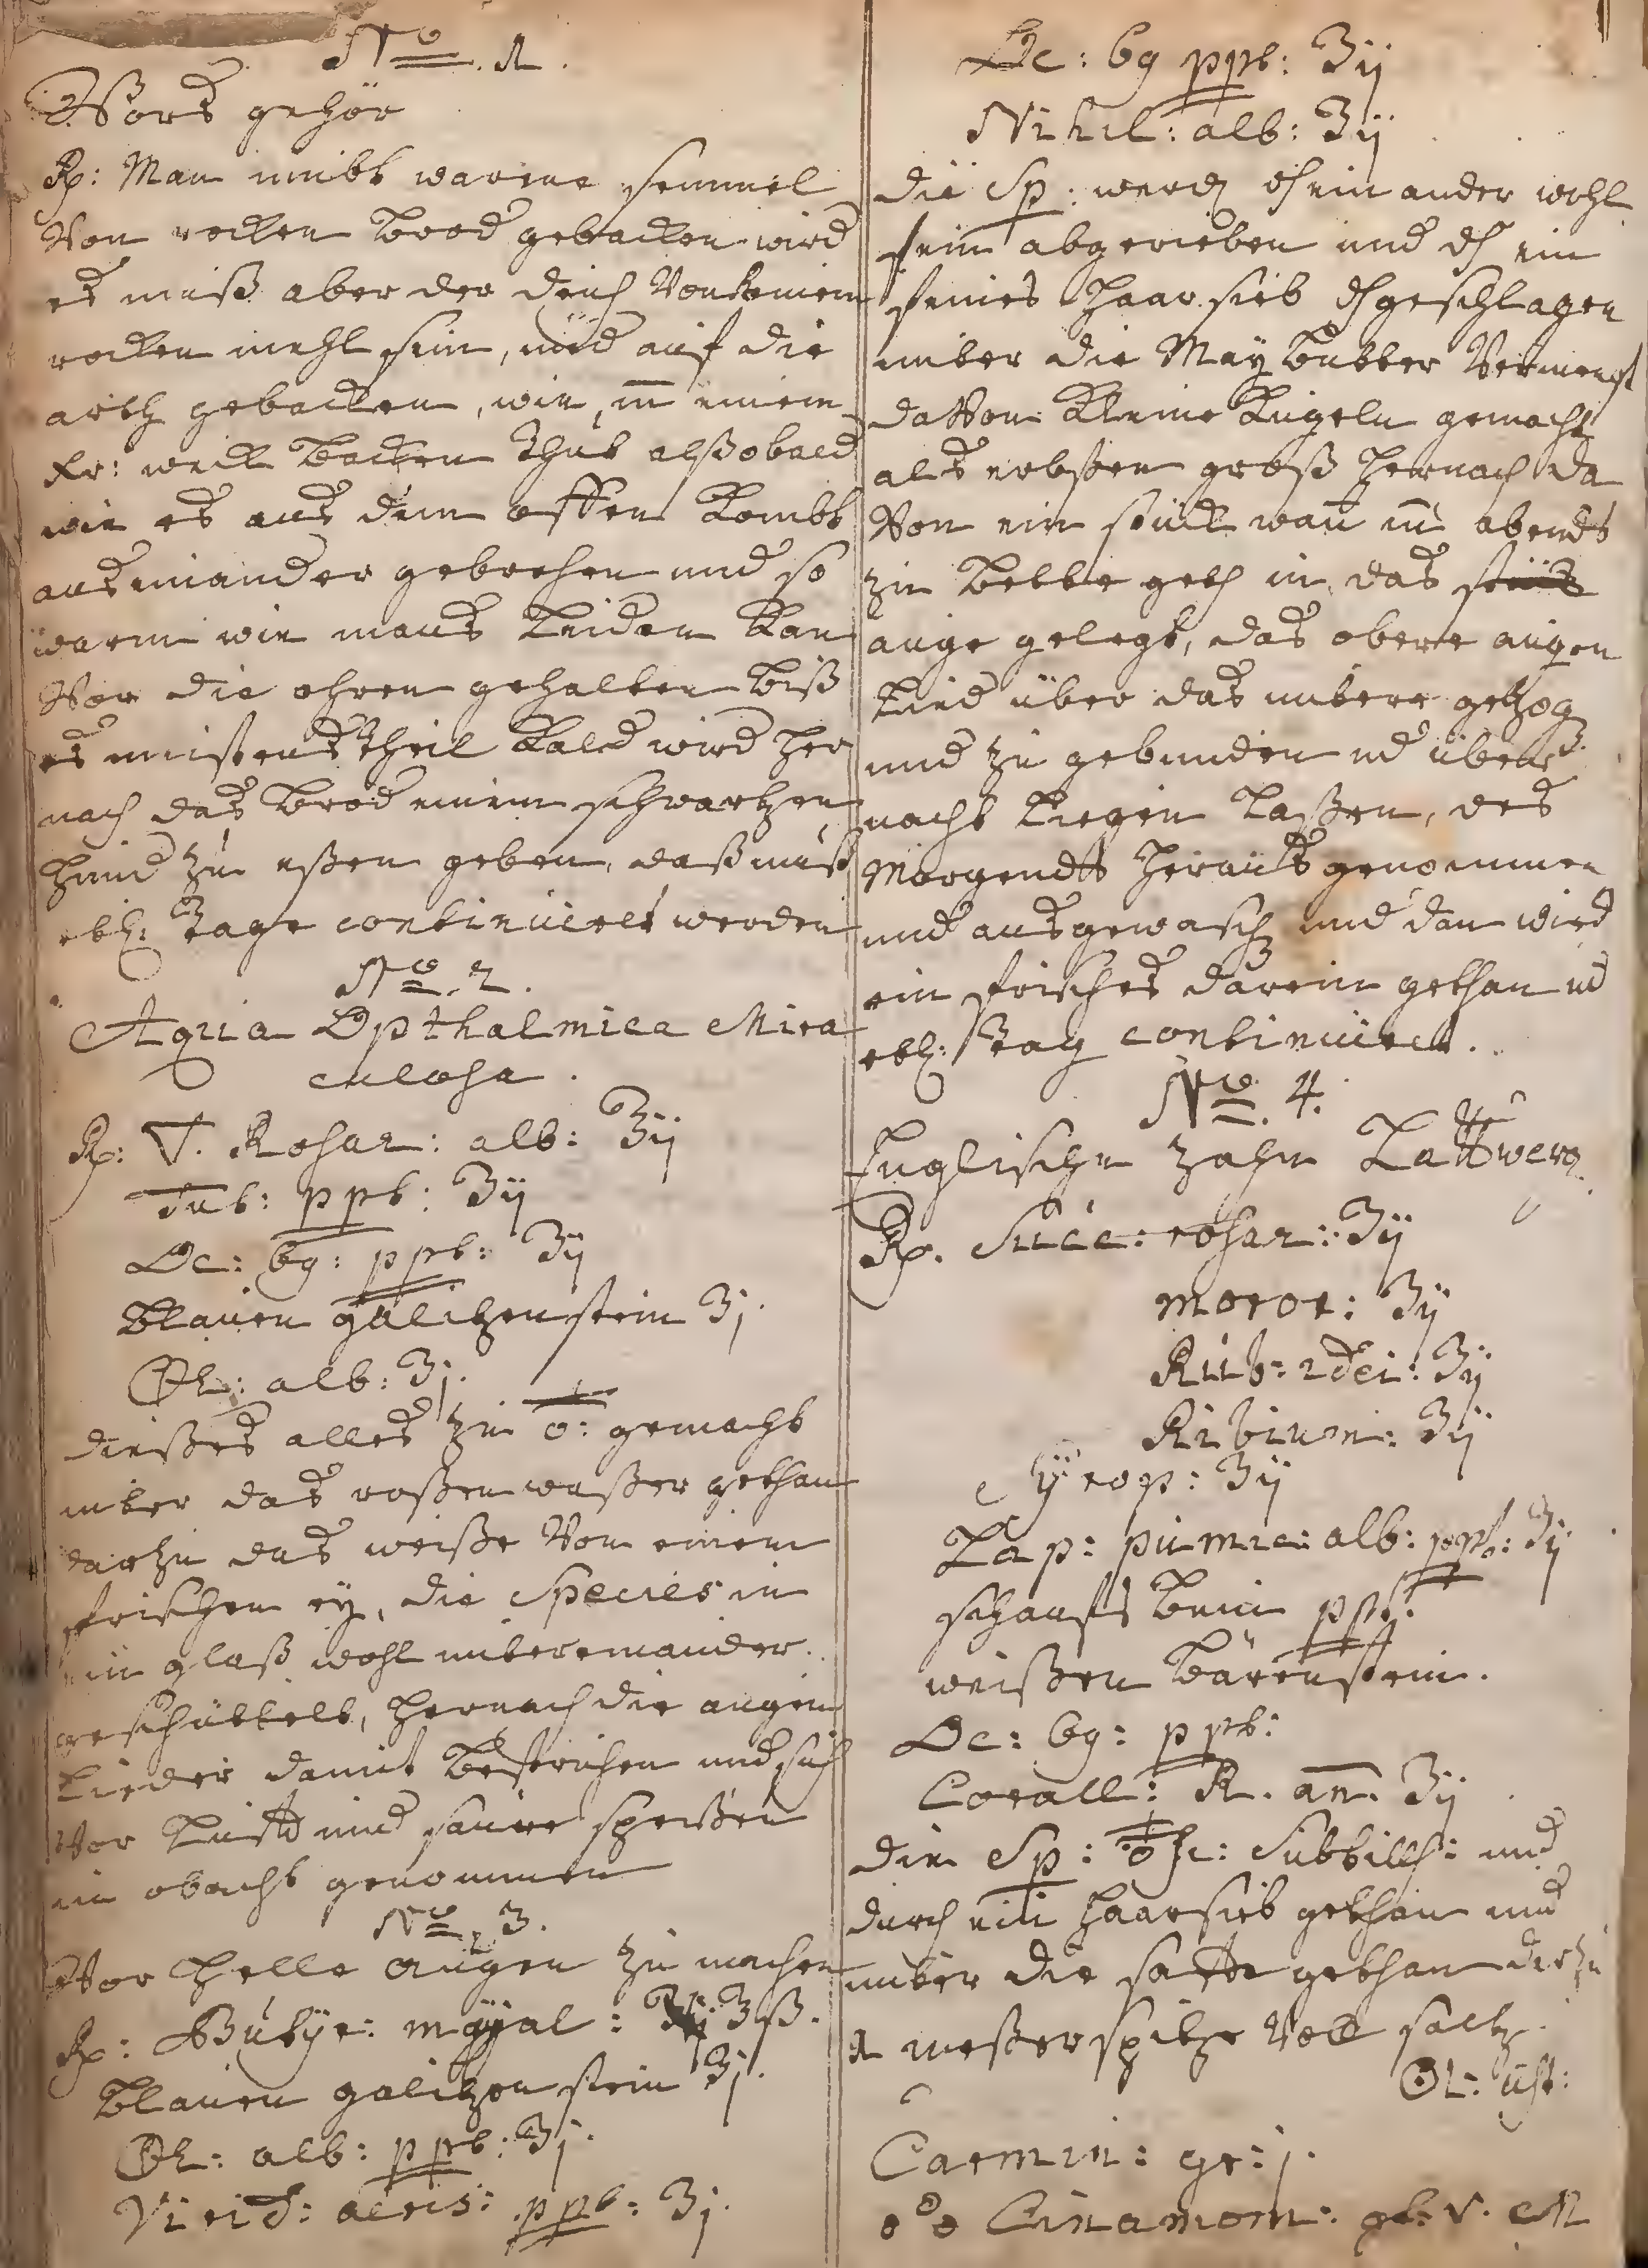 No. 1.
Vors gehör
Rp: Man nimbt warme semmel
Von rocken Brod gebacken wird
es muß aber der deich Von Keinem
rocken mehl sein, und auf die
arth gebacken, wie, m̄ einem
Kr: weck Backen thut alßobald
wie es aus dem offen Kombt
auseinander gebrochen und so
warm wie mans Leiden Kan
Vor die ohren gehalten biß
es meistens theil Kald wird her
nach das Brod einem schwartzen
Hund zu eßen geben, daß muß
etl: Tage continuiert werden
No. 2.
Aqua Opthalmica Mira
culosa.
Rp: ▽. Rosar: alb: ʒij
Tut: ppt: ʒij
Oc: 69: ppt: ʒij
Blauen galitzenstein ʒj.
Øl: alb: ʒj.
dießes alles zu gemacht
unter das roßen waßer gethan
dartzu das weiße Von einem
frischen ey, die Species in
ein glaß wohl untereinander
geschüttelt, hernach die augen
Lieder damit Bestrichen und sich
Vor Lufft und saure speißen
in obacht genommen
No. 3.
Vor Helle augen zu machen
Rp: Butyr: mayal: ʒß.
Blauen galitzen stein ʒj.
Øl: alb: ppt: ʒj.
Virid: aeris: ppt: ʒj.
Oc: 69 ppt: ʒij
Nihil: alb: ʒij
die Sp: werd unter ein ander wohl
fein abgerieben und d ein
feines Haar sieb geschlagen
unter die May Butter Vermengt
daVon Kleine Kugeln gemacht
als erbßen groß hernach da
Von ein stück wan m̄ abends
zu Bette geth in das
auge gelegt, das obere augen
Lied über das untere getzog
und zu gebunden ud über
nacht Liegen Laßen, des
Morgendts heraus genommen
und ausgewasch und dan wird
ein frisches darein gethan ud
etl: Tag continuirt.
No. 4.
Englische Zahn Lattwerg
Rp. Succ: rosar: ʒij
moror: ʒij
Rub: idei: ʒij
Ribium: ʒij
Syrop: ʒij
Lap: pumic: alb: ppt: ʒij
schaafs Bein ppt.
weißen Bärenstein.
Oc: 69: ppt:
Corall: R. an. ʒij
die Sp: Subtill: und
durch ein Haarsieb gethan und
unter die säffte gethan dartzu
1 meßerspitze Voll saltz.
Øl: ust:
Carmin: gr: j.
Cinamom: gt: v. M